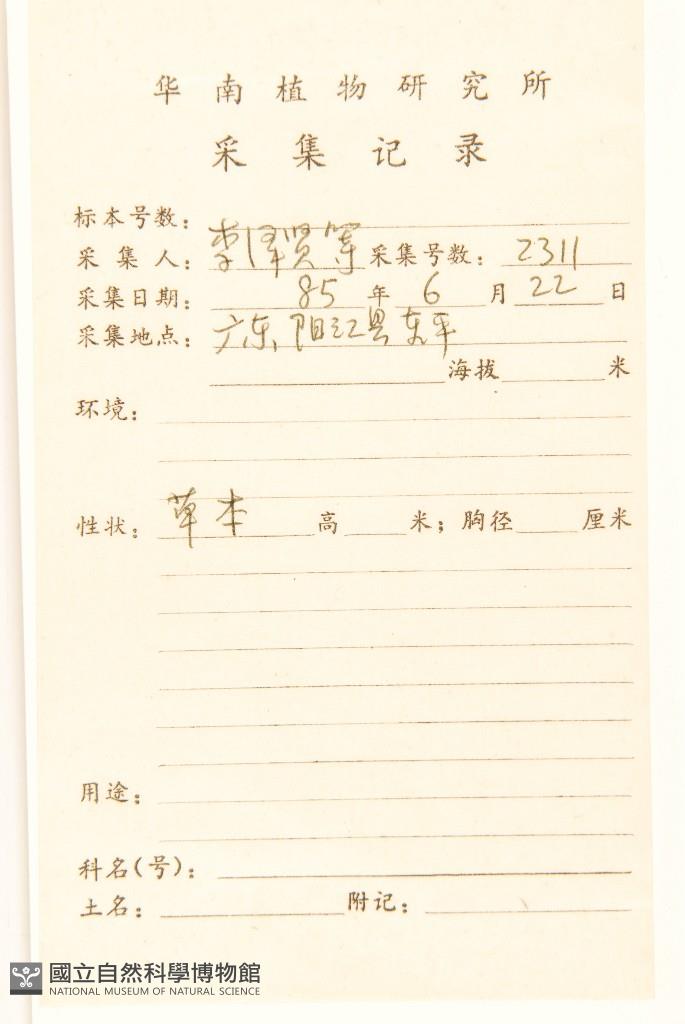 华南植物研究所
采集记录
标本号数：
采集人：李泽贤等 采集号数：2311
采集日期：85年6月22日
采集地点：广东，阳江县东平
海拔 米
环境：
性状：草本 高 米；胸径 厘米
用途：
科名(号)：
土名： 附记：
國立自然科學博物館
NATIONAL MUSEUM OF NATURAL SCIENCE